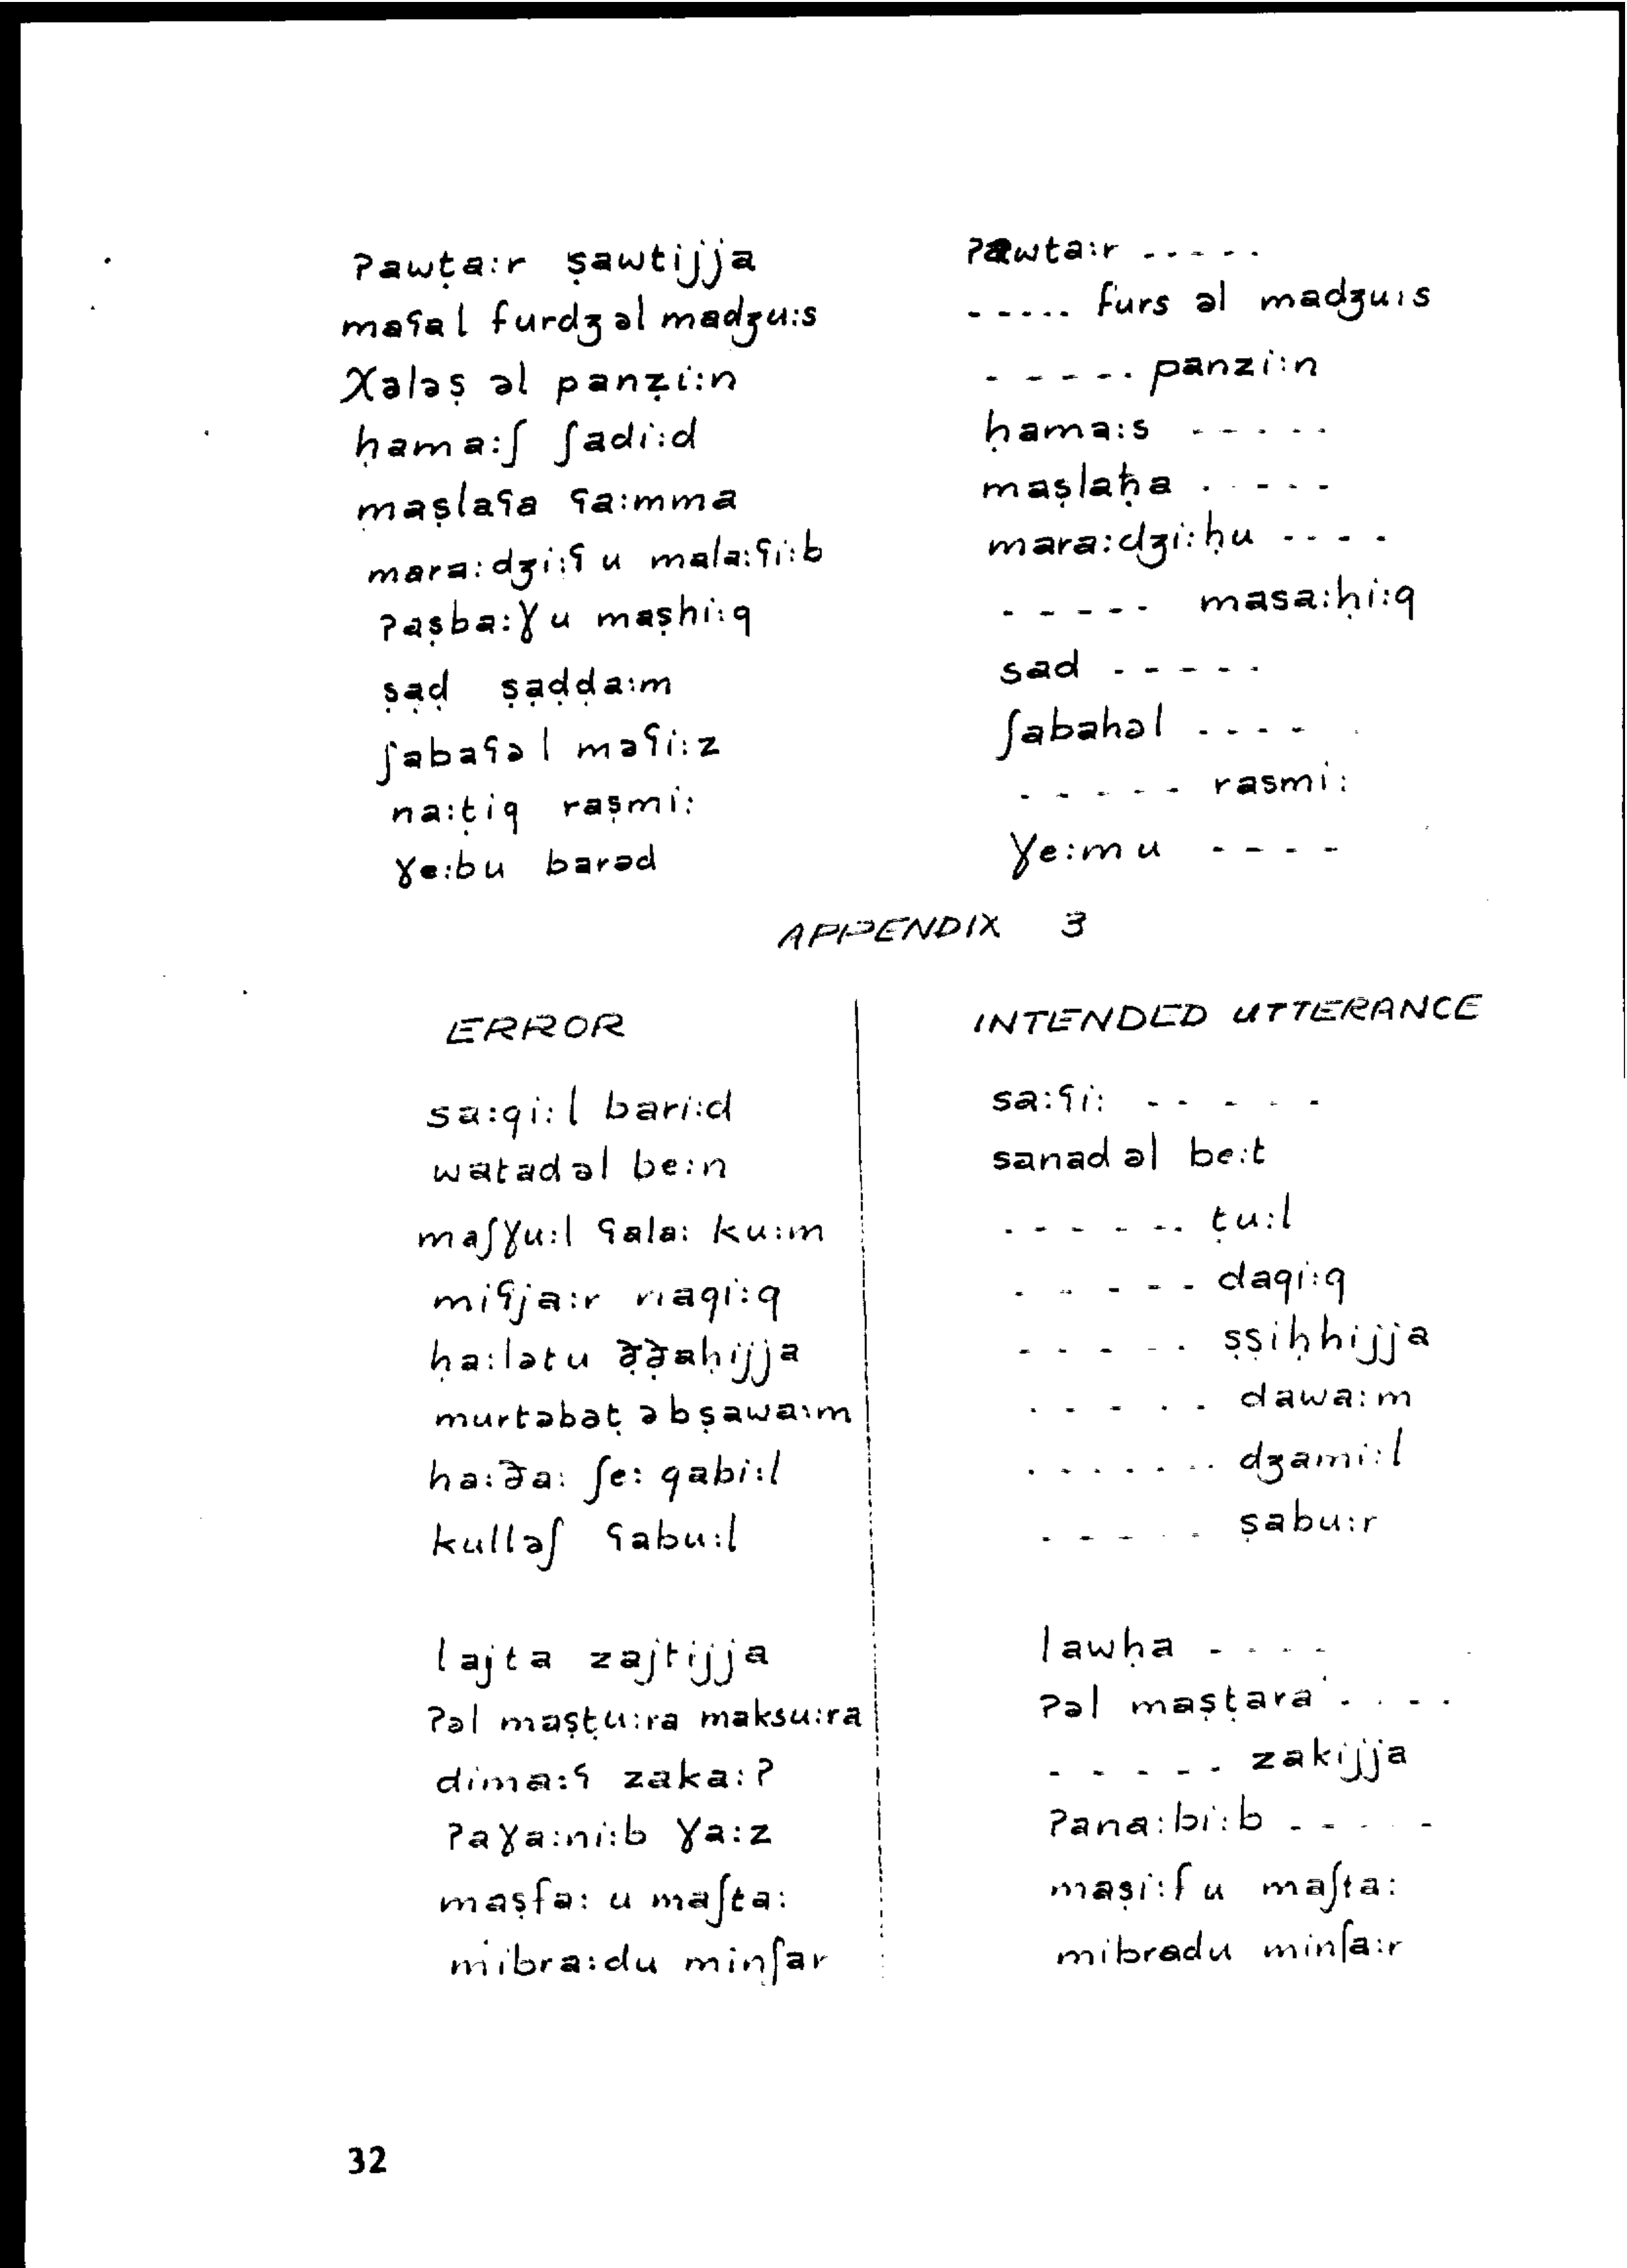 ʔawṭa:r ṣawtijja ʔawta:r -----
maʕal furdʒəl madʒu:s ----- furs əl madʒu:s
χələṣ əl panẓi:n ----- panzi:n
ḥama:ʃ ʃadi:d ḥama:s -----
maṣlaʕa ʕa:mma maṣlaḥa -----
mara:dʒi:ʕ u mala:ʕi:b mara:dʒi:ḥu ----
ʔaṣba:ɣ u maṣhi:q ----- masa:ḥi:q
ṣạḍ ṣạḍḍa:m sad -----
ʃabaʕəl məʕi:z ʃabahəl ----
na:ṭiq raṣmi: ----- rasmi:
ɣe:bu barəd ɣe:mu ----
APPENDIX 3
ERROR INTENDED UTTERANCE
sa:qi:l bari:d sa:ʕi: -----
watadəl be:n sanad əl be:t
maʃɣu:l ʕala: ku:m ------ ṭu:l
miʕja:r naqi:q ----- daqi:q
ḥa:lətu ð̣ð̣aḥijja ----- ṣṣiḥḥijja
murtəbəṭ əbṣawa:m ----- dawa:m
ha:ða: ʃe: qabi:l ------- dʒami:l
kulləʃ ʕabu:l ----- ṣabu:r
lajta zajtijja lawḥa ----
ʔəl maṣṭu:ra maksu:ra ʔəl maṣṭara ----
dima:ʕ zaka:ʔ ----- zakijja
ʔaɣa:ni:b ɣa:z ʔana:bi:b -----
maṣfa: u maʃta: maṣi:f u maʃta:
mibra:du minʃar mibradu minʃa:r
32